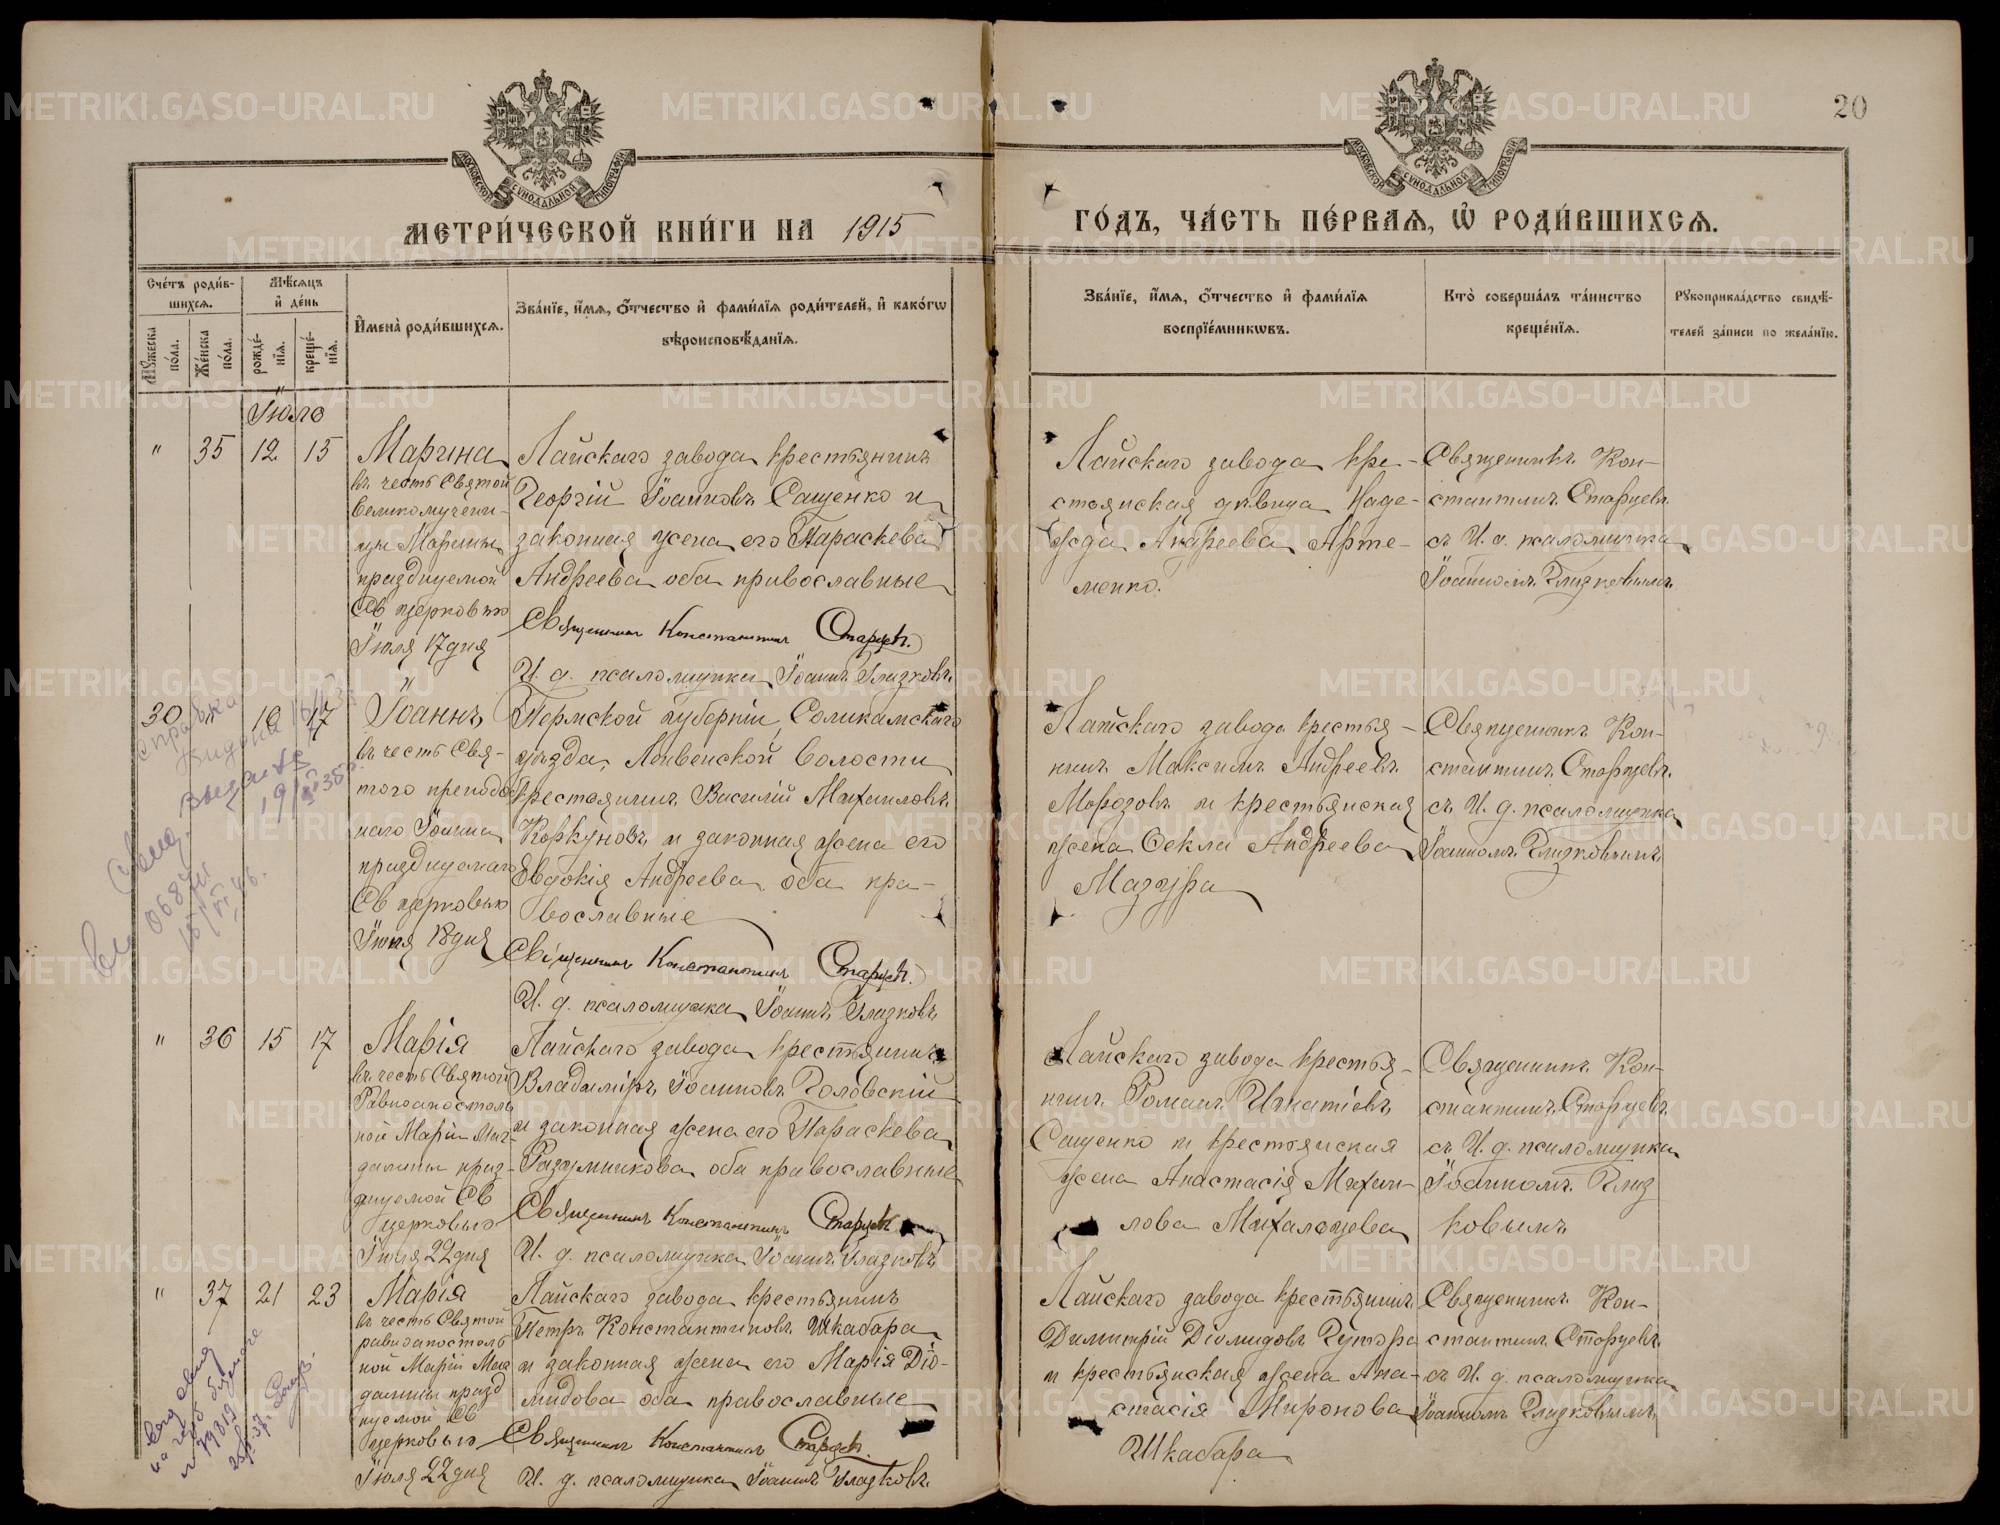 20
МОСКОВСКОЙ СУНОДАЛЬНОЙ ТИПОГРАФІИ
МОСКОВСКОЙ СУНОДАЛЬНОЙ ТИПОГРАФІИ
МЕТРИ́ЧЕСКОЙ КНИ́ГИ НА 1915
ГО́ДЪ, ЧА́СТЬ ПЕ́РВАѦ, Ѽ РОДИ́ВШИХСѦ.
Сче́тъ роди́в-
шихсѧ.
Мѣ́сѧцъ
и҆ де́нь
Мꙋ́жеска
по́ла.
Же́нска
по́ла.
рожде́-
нїѧ.
креще́-
нїѧ.
И҆мена̀ роди́вшихсѧ.
Зва́нїе, и҆́мѧ, ѻ҆́тчество и҆ фами́лїѧ роди́телей, и҆ како́гѡ
вѣроисповѣ́данїѧ.
Зва́нїе, и҆́мѧ, ѻ҆́тчество и҆ фами́лїѧ
воспрїе́мникѡвъ.
Кто̀ соверша́лъ та́инство
креще́нїѧ.
Рꙋкоприкла́дство свидѣ́-
телей за́писи по жела́нїю.
Іюль
" 35 12 15
Марина
въ честь Святой
Великомучени-
цы Марины
празднуемой
Св церковью
Іюля 17 дня
Лайскаго завода крестьянинъ
Георгій Іоанновъ Сащенко и
законная жена его Параскева
Андреева оба православные
Священникъ Константинъ Старцевъ.
И. д. псаломщика Іоаннъ Глазковъ
Лайскаго завода кре-
стьянская дѣвица Наде-
жда Андреева Арте-
менко.
Священникъ Кон-
стантинъ Старцевъ
съ И. д. псаломщика
Іоанномъ Глазковымъ
30 " 16 17
Іоаннъ
въ честь Свя-
того преподоб
наго Іоанна
празднуемаго
Св церковью
Іюля 18 дня
Пермской губерніи, Соликамскаго
уѣзда, волости
крестьянинъ Василій Михаиловъ
Коркуновъ и законная жена его
Евдокія Андреева оба пра-
вославные
Священникъ Константинъ Старцевъ.
И. д. псаломщика Іоаннъ Глазковъ
Лайскаго завода крестья-
нинъ Максимъ Андреевъ
Морозовъ и крестьянская
жена Ѳекла Андреева
Мазура
Священникъ Кон-
стантинъ Старцевъ
съ И. д. псаломщика
Іоанномъ Глазковымъ
справка
" 36 15 17
Марія
въ честь Святой
Равноапостоль
ной Маріи Маг-
далины праз-
днуемой Св
церковью
Іюля 22 дня
Лайскаго завода крестьянинъ
Владиміръ Іоанновъ Головскій
и законная жена его Параскева
Разумникова оба православные
Священникъ Константинъ Старцевъ
И. д. псаломщика Іоаннъ Глазковъ
Лайскаго завода крестья-
нинъ Романъ Игнатіевъ
Сащенко и крестьянская
жена Анастасія Михаи-
лова Михаловцева
Священникъ Кон-
стантинъ Старцевъ
съ И. д. псаломщика
Іоанномъ Глаз
ковымъ
" 37 21 23
Марія
въ честь Святой
равноапостоль
ной Маріи Маг
далины празд
нуемой Св
церковью
Іюля 22 дня
Лайскаго завода крестьянинъ
Петръ Константиновъ Шкабара
и законная жена его Марія Діо-
мидова оба православные
Священникъ Константинъ Старцевъ.
И. д. псаломщика Іоаннъ Глазковъ
Лайскаго завода крестьянинъ
Димитрій Діомидовъ
и крестьянская жена Ана-
стасія Миронова
Шкабара
Священникъ Кон-
стантинъ Старцевъ
съ И. д. псаломщика
Іоанномъ Глазковымъ
METRIKI.GASO-URAL.RU